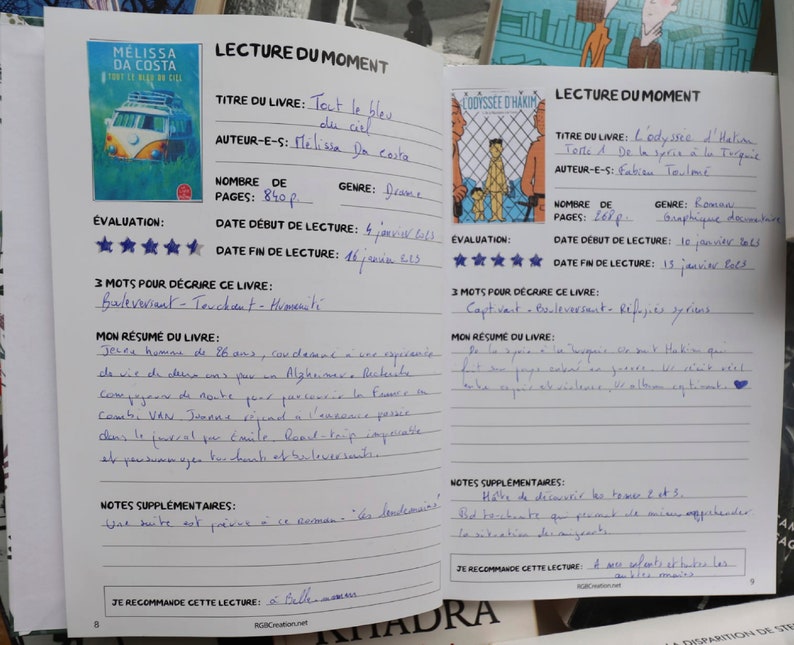 MÉLISSA
DA COSTA
TOUT LE BLEU DU CIEL
LECTURE DU MOMENT
TITRE DU LIVRE: Tout le bleu
du ciel
AUTEUR-E-S: Mélissa Da Costa
NOMBRE DE
PAGES: 840 p.
GENRE: Drame
ÉVALUATION:
DATE DÉBUT DE LECTURE: 4 janvier 2023
DATE FIN DE LECTURE: 16 janvier
3 MOTS POUR DÉCRIRE CE LIVRE:
Bouleversant - Touchant - Humanité
MON RÉSUMÉ DU LIVRE:
Jeune homme de 26 ans, condamné à une espérance
de vie de deux ans par un Alzheimer. Recherche
compagnon de route pour parcourir la France en
Combi VAN. Joanne répond à l'annonce passée
dans le journal par Émile. Road-trip impeccable
et personnages touchants et bouleversants.
NOTES SUPPLÉMENTAIRES:
Une suite est prévue à ce roman - "Les lendemains"
JE RECOMMANDE CETTE LECTURE: à Belle-maman
8
RGBCreation.net
L'ODYSSÉE D'HAKIM
LECTURE DU MOMENT
TITRE DU LIVRE: L'odyssée d'Hakim
Tome 1 De la syrie à la Turquie
AUTEUR-E-S: Fabien Toulmé
NOMBRE DE
PAGES: 268 p.
GENRE: Roman
Graphique documentaire
ÉVALUATION:
DATE DÉBUT DE LECTURE: 10 janvier 2023
DATE FIN DE LECTURE: 13 janvier 2023
3 MOTS POUR DÉCRIRE CE LIVRE:
Captivant - Bouleversant - Réfugiés syriens
MON RÉSUMÉ DU LIVRE:
De la syrie à la Turquie. On suit Hakim qui
fuit son pays entré en guerre. Un récit réel
entre espoir et violence. Un album captivant.
NOTES SUPPLÉMENTAIRES:
Hâte de découvrir les tomes 2 et 3.
Bd touchante qui permet de mieux appréhender
la situation des migrants.
JE RECOMMANDE CETTE LECTURE: A mes enfants et toutes les
9
RGBCreation.net
KHADRA
LA DISPARITION DE STE